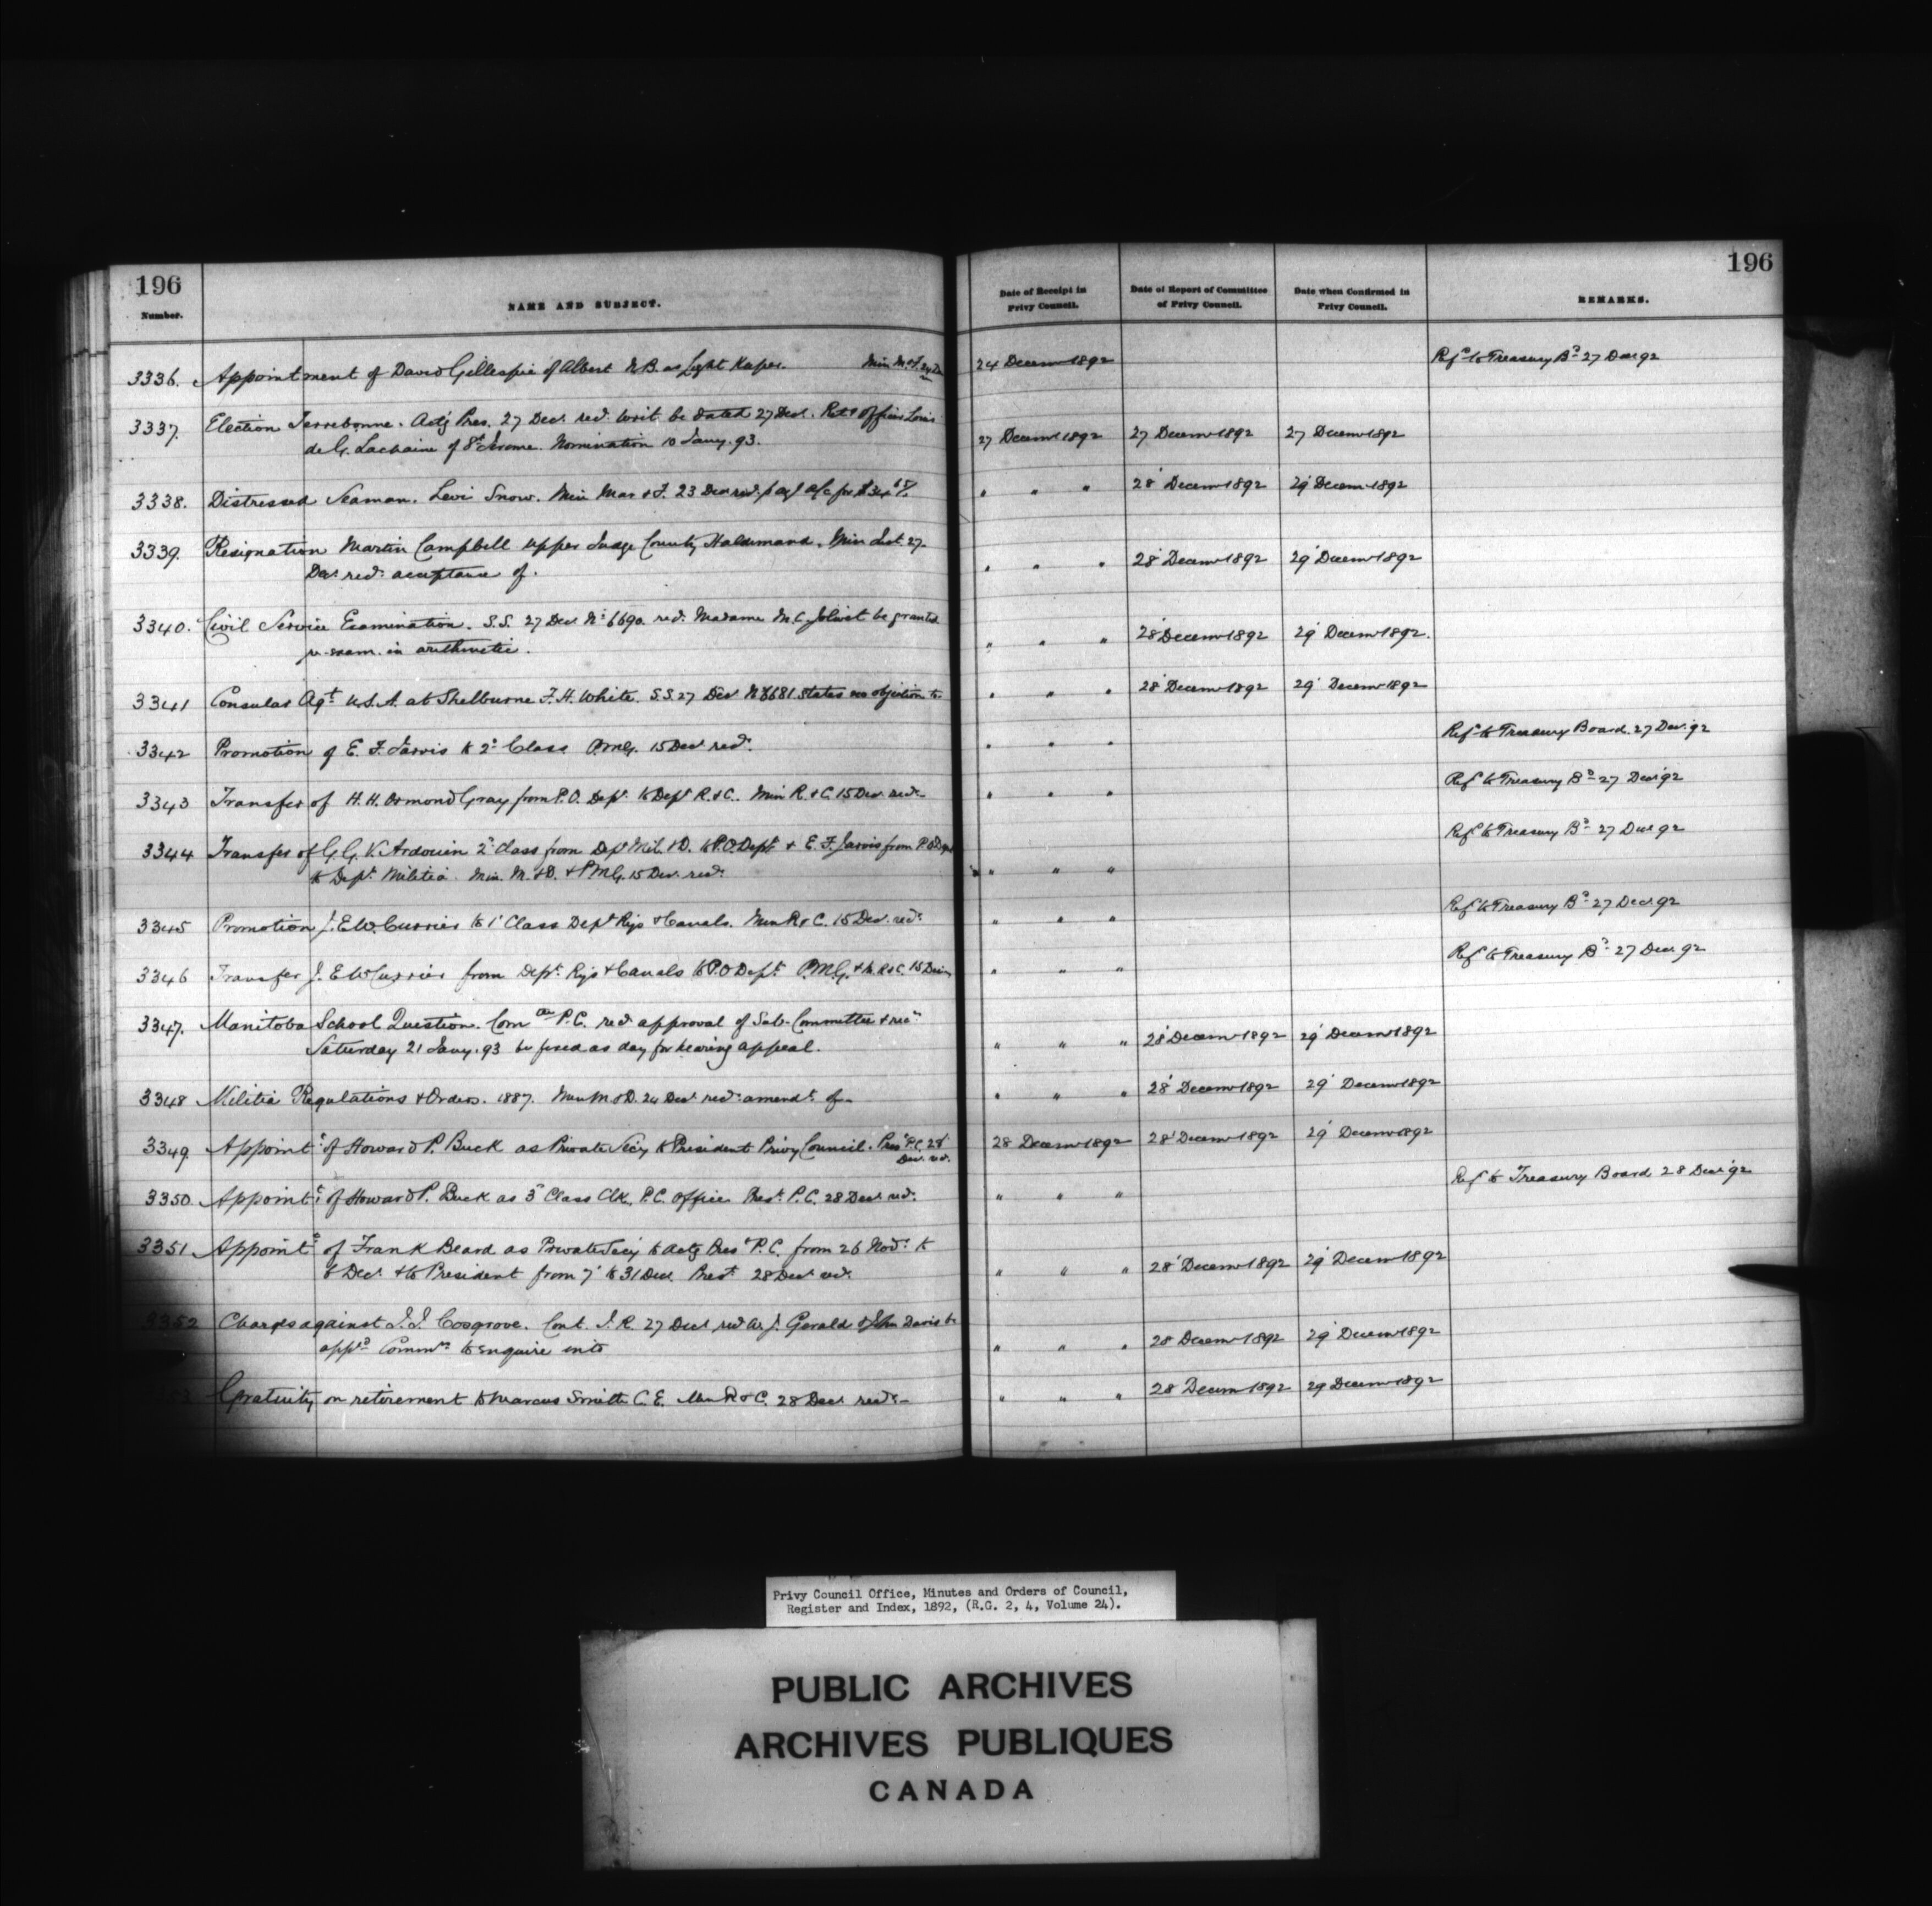 196
Number.
NAME AND SUBJECT.
Date of Receipt in Privy Council.
Date of Report of Committee of Privy Council.
Date when Confirmed in Privy Council.
REMARKS.
196
3336. Appointment of David Gillespie of Albert N.B. as Light Keeper. Min M&F. 24 24 Decemr 1892 Refd to Treasury Bd 27 Decr 92
3337. Election Terrebonne. Actg Pres. 27 Decr recd. Writ be dated 27 Decr. Retg Officer Louis
de G. Lachaine of St Jerome. Nomination 10 Jany. 93. 27 Decemr 1892 27 Decemr 1892 27 Decemr 1892
3338. Distressed Seaman. Levi Snow. Min Mar & F. 23 Decr recd. a/c for " " " 28 Decemr 1892 29 Decemr 1892
3339. Resignation Martin Campbell Upper Judge County Haldimand. Min Just. 27.
Decr recd. acceptance of. " " " 28 Decemr 1892 29 Decemr 1892
3340. Civil Service Examination. S.S. 27 Decr No 6690. recd. Madame M.C. Jolivet be granted
re-exam. in arithmetic. " " " 28 Decemr 1892 29 Decemr 1892.
3341 Consular Agt U.S.A. at Shelburne F.H. White. S.S. 27 Decr No 6681 States no objection to " " " 28 Decemr 1892 29 Decemr 1892
3342 Promotion of E. F. Jarvis to 2d Class P.M.G. 15 Decr recd. " " " Refd to Treasury Board. 27 Decr. 92
3343 Transfer of H. H. Ormond Gray from P.O. Dept. to Dept R. & C. Min R. & C. 15 Decr. recd. " " " Refd to Treasury Bd 27 Decr 92
3344 Transfer of G. G. V. Ardouin 2d Class from Dept Mil. & D. to P.O. Dept. & E. F. Jarvis from P.O. Dept
to Dept. Militia. Min. M. & D. & P.M.G. 15 Decr. recd. " " " Refd to Treasury Bd 27 Decr 92
3345 Promotion J. E. W. Currier to 1st Class Dept Rys & Canals. Min R & C. 15 Decr. recd. " " " Refd to Treasury Bd 27 Decr 92
3346 Transfer J. E. W. Currier from Dept. Rys & Canals to P.O. Dept. P.M.G. & M. R & C. 15 Decr " " " Refd to Treasury Bd 27 Decr. 92
3347. Manitoba School Question. Com P.C. recd. approval of Sub-Committee & recn
Saturday 21 Jany. 93 be fixed as day for hearing appeal. " " " 28 Decemr 1892 29 Decemr 1892
3348 Militia Regulations & Orders. 1887. Min M & D. 24 Decr recd. amendt. of " " " 28 Decemr 1892 29 Decemr 1892
3349 Appointt of Howard P. Buck as Private Secy to President Privy Council. Prest P.C. 28
Decr. recd. 28 Decemr 1892 28 Decemr 1892 29 Decemr 1892
3350. Appointt of Howard P. Buck as 3rd Class Clk. P.C. Office Prest. P.C. 28 Decr recd. " " " Refd to Treasury Board 28 Decr 92
3351 Appointt of Frank Beard as Private Secy to Actg Prest P.C. from 26 Novr. to
6 Decr. & to President from 7 to 31 Decr. Prest 28 Decr recd. " " " 28 Decemr 1892 29 Decemr 1892
3352 Charges against J. J. Cosgrove. Cont. I. R. 27 Decr recd W. J. Gerald & John Davis be
appd Commrs to enquire into " " " 28 Decemr 1892 29 Decemr 1892
Gratuity on retirement to Marcus Smith C. E. Min R & C. 28 Decr recd. " " " 28 Decemr 1892 29 Decemr 1892
Privy Council Office, Minutes and Orders of Council,
Register and Index, 1892, (R.G. 2, 4, Volume 24).
PUBLIC ARCHIVES
ARCHIVES PUBLIQUES
CANADA